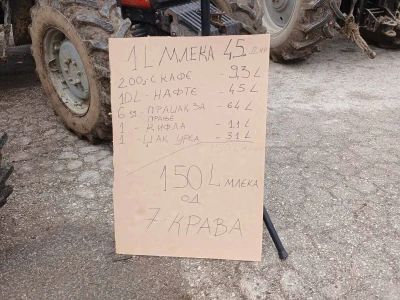 1L МЛЕКА 45
200g КАФЕ - 9,3 L
10L - НАФТЕ - 45 L
6 - ПРАШАК ЗА - 64 L
ПРАЊЕ
1 - КИФЛА - 1,1 L
1 - ЏАК УРЕА - 31 L
150 L МЛЕКА
ОД
7 КРАВА